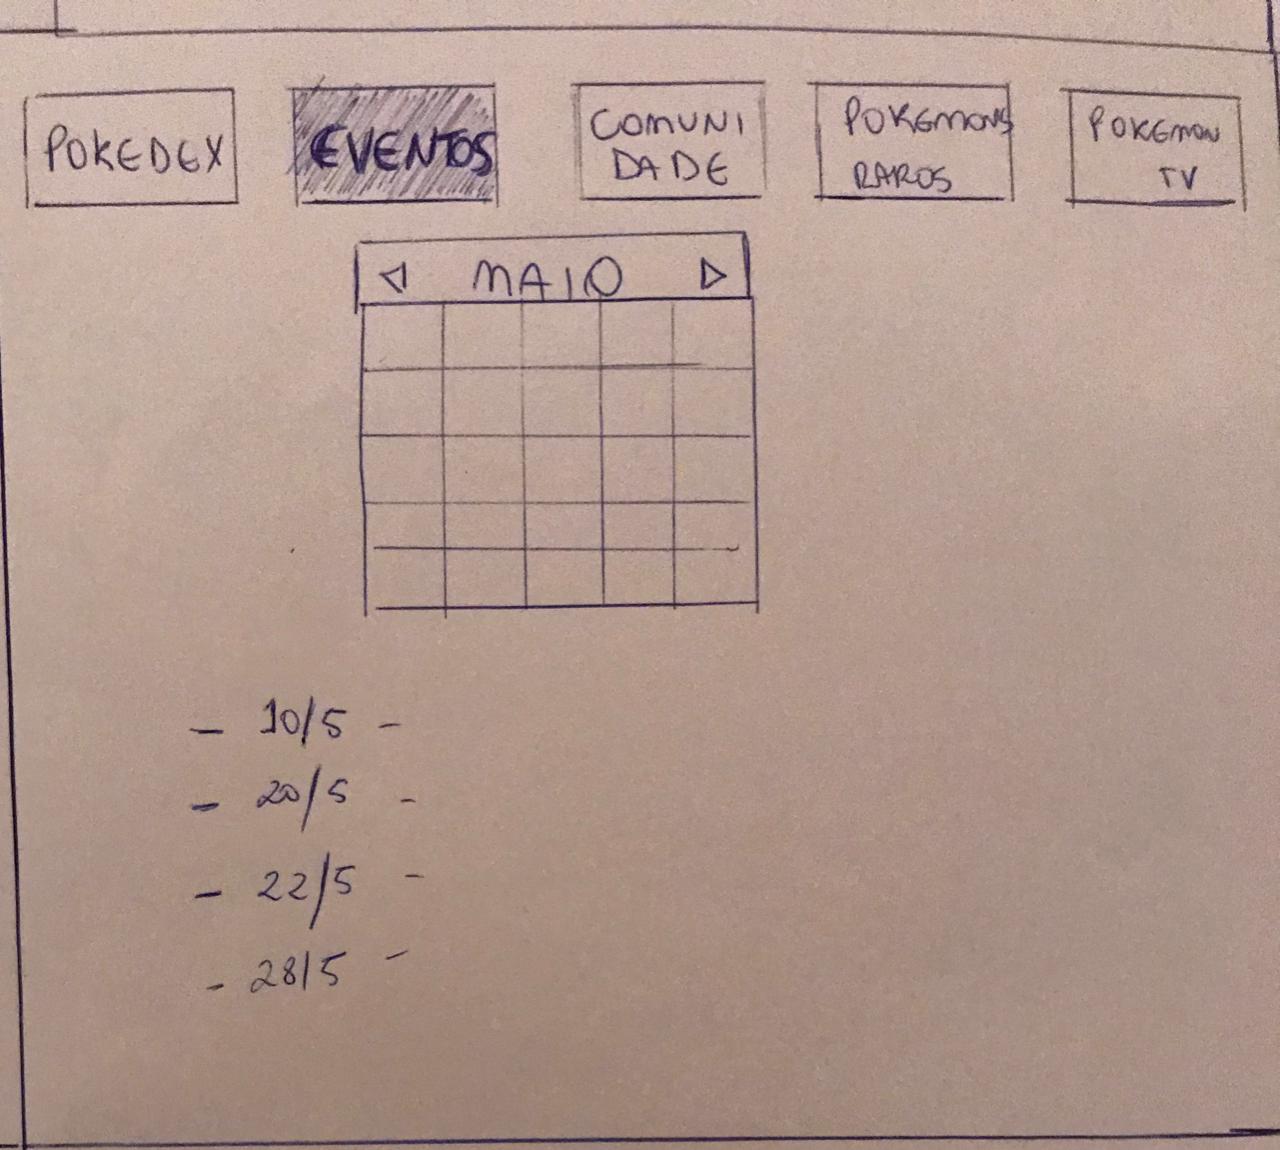 POKEDEX
EVENTOS
COMUNI
DADE
POKEMONS
RAROS
POKEMON
TV
MAIO
- 10/5 -
- 20/5 -
- 22/5 -
- 28/5 -